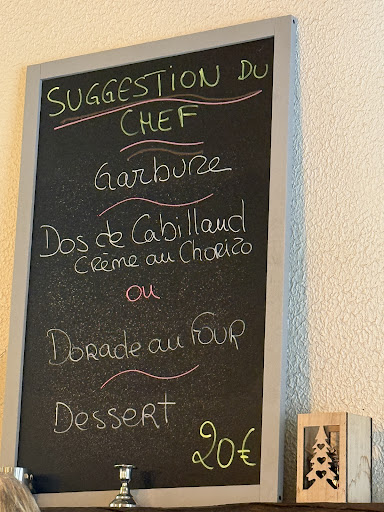 SUGGESTION DU
CHEF
Garbure
Dos de Cabillaud
Crème au Chorizo
ou
Dorade au four
Dessert
20€